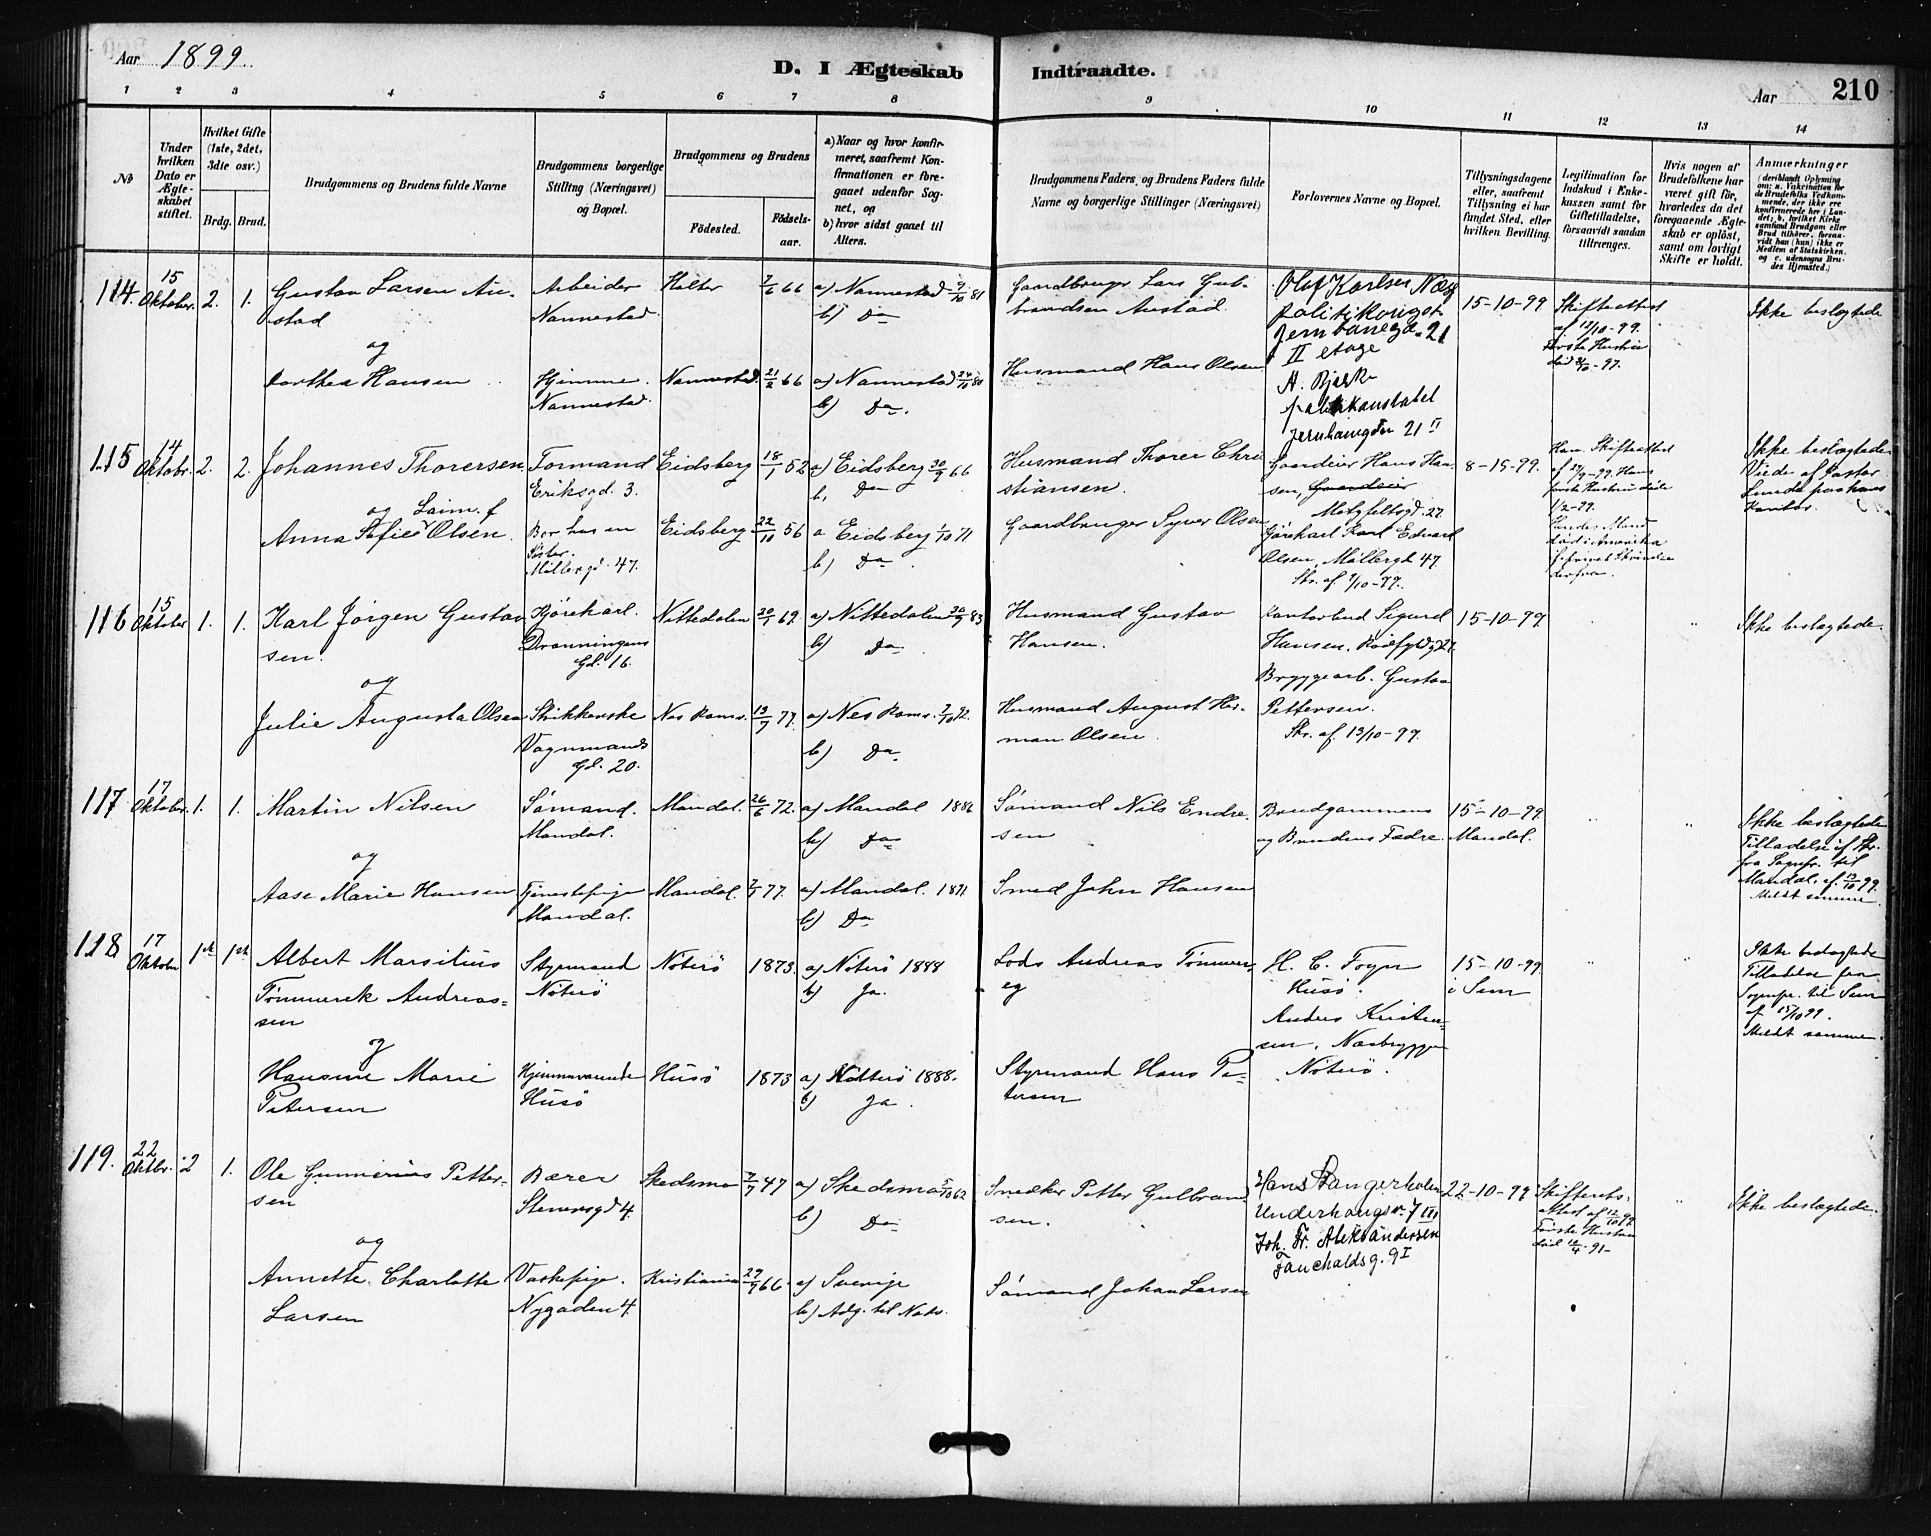 Aar 1899.
D. I Ægteskab Indtraadte.
Aar 210
1 2 3 4 5 6 7 8 9 10 11 12 13 14
№
Under hvilken Dato er Ægteskabet stiftet.
Hvilket Gifte (1ste, 2det, 3die osv.)
Brdg. Brud.
Brudgommens og Brudens fulde Navne
Brudgommens borgerlige Stilling (Næringsvei) og Bopæl.
Brudgommens og Brudens
Födested.
Födselsaar.
a) Naar og hvor konfirmeret, saafremt Konfirmationen er foregaaet udenfor Sognet, og
b) hvor sidst gaaet til Alters.
Brudgommens Faders, og Brudens Faders fulde Navne og borgerlige Stillinger (Næringsvei)
Forlovernes Navne og Bopæl.
Tillysningsdagene eller, saafremt Tillysning ei har fundet Sted, efter hvilken Bevilling.
Legitimation for Indskud i Enkekassen samt for Giftetilladelse, forsaavidt saadan tiltrænges.
Hvis nogen af Brudefolkene har været gift för, hvorledes da det foregaaende Ægteskab er oplöst, samt om lovligt Skifte er holdt.
Anmærkninger
114. 15 Oktober. 2. 1. Gustav Larsen Austad
Arbeider Nannestad.
Holter 7/6 66 a) Nannestad 9/10 81
b) Da
Gaardbruger Lars Gulbrandsen Austad.
Olaf Karlsen Næs politikonst. Jernbanegd. 21 II etage
15-10-99. Skifteattest af 12/10-99. Første Hustru død
Ikke beslægtede
og
Dorthea Hansen
Hjemme. Nannestad.
Nannestad. 21/2 66 a) Nannestad 24/10 80
b) Da.
Husmand Hans Olsen
A. Bjerke politikonstabel Jernbanegden 21 II
115 14 Oktobr. 2. 2. Johannes Thorersen
Formand Eriksgd. 3.
Eidsberg 18/1 52 a) Eidsberg 30/9 66
b, Da
Husmand Thorer Christiansen.
Gaardeier Hans Hansen, Gaardeier Motzfeltsgd. 27.
8-15-99. Ham. Skifteattest
Ikke beslægtede Viede af Pastor Lunde paa hans Kontor.
og
Anna Sofie Olsen.
Bor hos en Søster. Møllergd. 47.
Eidsberg 22/10 56 a Eidsberg 1/10 71
b) Da
Gaardbruger Syver Olsen
Kjørekarl Karl Edvard Olsen, Møllergd 47.
Skr. af 7/10-99.
Hendes Mand død i Amerika
116 15 Oktober 1. 1. Karl Jørgen Gustavsen.
Kjørekarl. Dronningens Gd. 16.
Nittedalen 20/1 69. a) Nittedalen 30/9 83
b) Da
Husmand Gustav Hansen.
Kontorbud Sigurd Hansen.
15-10-99. Ikke beslægtede.
og
Julie Augusta Olsen
Strikkerske Vognmands Gd. 20.
Nes Rom. 13/7 77. a) Nes Rom. 2/10 92.
b) Da
Husmand August Herman Olsen.
Bryggearb. Gustav Pettersen.
Skr. af 13/10-99.
117 17 Oktober. 1. 1. Martin Nilsen
Sømand. Mandal.
Mandal. 26/6 72. a) Mandal 1886
b) Da
Sømand Nils Endresen
Brudgommens og Brudens Fædre.
15-10-99. Mandal.
Ikke beslægtede Tilladelse af fra Sognepr. til Mandal. af 13/10 99. Meldt samme.
og
Aase Marie Hansen
Tjenestepige Mandal.
Mandal. 77. a) Mandal. 1891
b) Da
Smed John Hansen
118 17 Oktober 1st 1st Albert Marsilius Tømmerek Andreassen
Styrmand Nøterø
Nøterø 1873. a) Nøterø 1888
b) Ja.
Lods Andreas Tømmereg
H. C. Foyn Husø.
15-10-99 i Sem
Ikke beslægtede Tilladelse fra Sognepr. til Sem af 15/10 99. Meldt samme.
og
Hansine Marie Petersen
Hjemmeværende Husø
Husø 1873 a) Nøtterø 1888.
b) Ja.
Styrmand Hans Petersen
Anders Kristensen, Næsbryggen Nøterø.
119. 22 Oktbr. 2 1. Ole Gunnerius Pettersen
Bærer Stenersgd 4.
Skedsmo 7/7 47 a) Skedsmo 5/10 62
b) Da
Snedker Petter Gulbrandsen.
Hans Stangerholen Underhaugsv. 7 III
22-10-99 Skifterets-attest af 12/10 99. Første Hustru død 12/4-91-
Ikke beslægtede.
og
Annette Charlotte Larsen
Vaskepige. Nygaden 4.
Kristiania 29/9 66. a) Sverige
b) Adg. til Natv.
Sømand Johan Larsen
Joh. Fr. Aleksandersen Fauchaldsg. 9 I